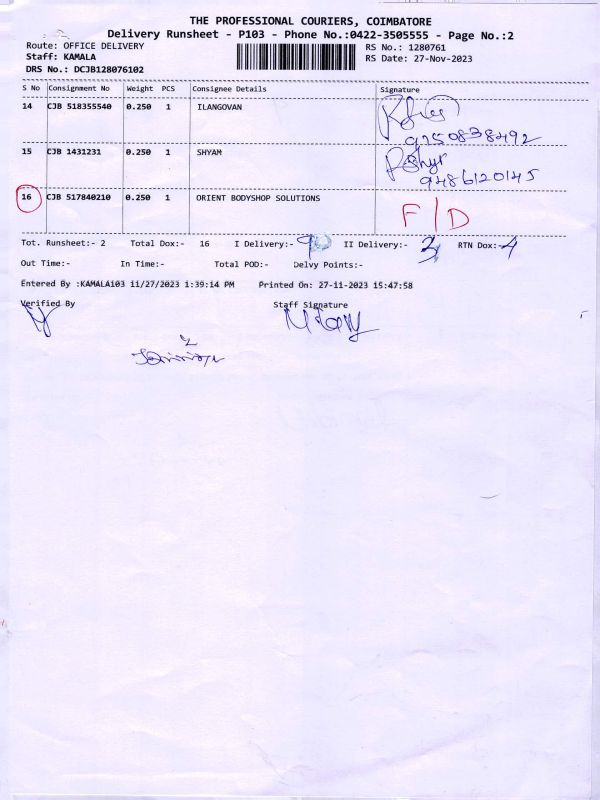 THE PROFESSIONAL COURIERS, COIMBATORE
Delivery Runsheet - P103 - Phone No.:0422-3505555 - Page No.:2
Route: OFFICE DELIVERY
RS No.: 1280761
Staff: KAMALA
RS Date: 27-Nov-2023
DRS No.: DCJB128076102
S No Consignment No Weight PCS Consignee Details Signature
14 CJB 518355540 0.250 1 ILANGOVAN
9750838492
15 CJB 1431231 0.250 1 SHYAM
9486120145
16 CJB 517840210 0.250 1 ORIENT BODYSHOP SOLUTIONS
F/D
Tot. Runsheet:- 2 Total Dox:- 16 I Delivery:- 9 II Delivery:- 3 RTN Dox:- 4
Out Time:- In Time:- Total POD:- Delvy Points:-
Entered By :KAMALA103 11/27/2023 1:39:14 PM Printed On: 27-11-2023 15:47:58
Verified By Staff Signature